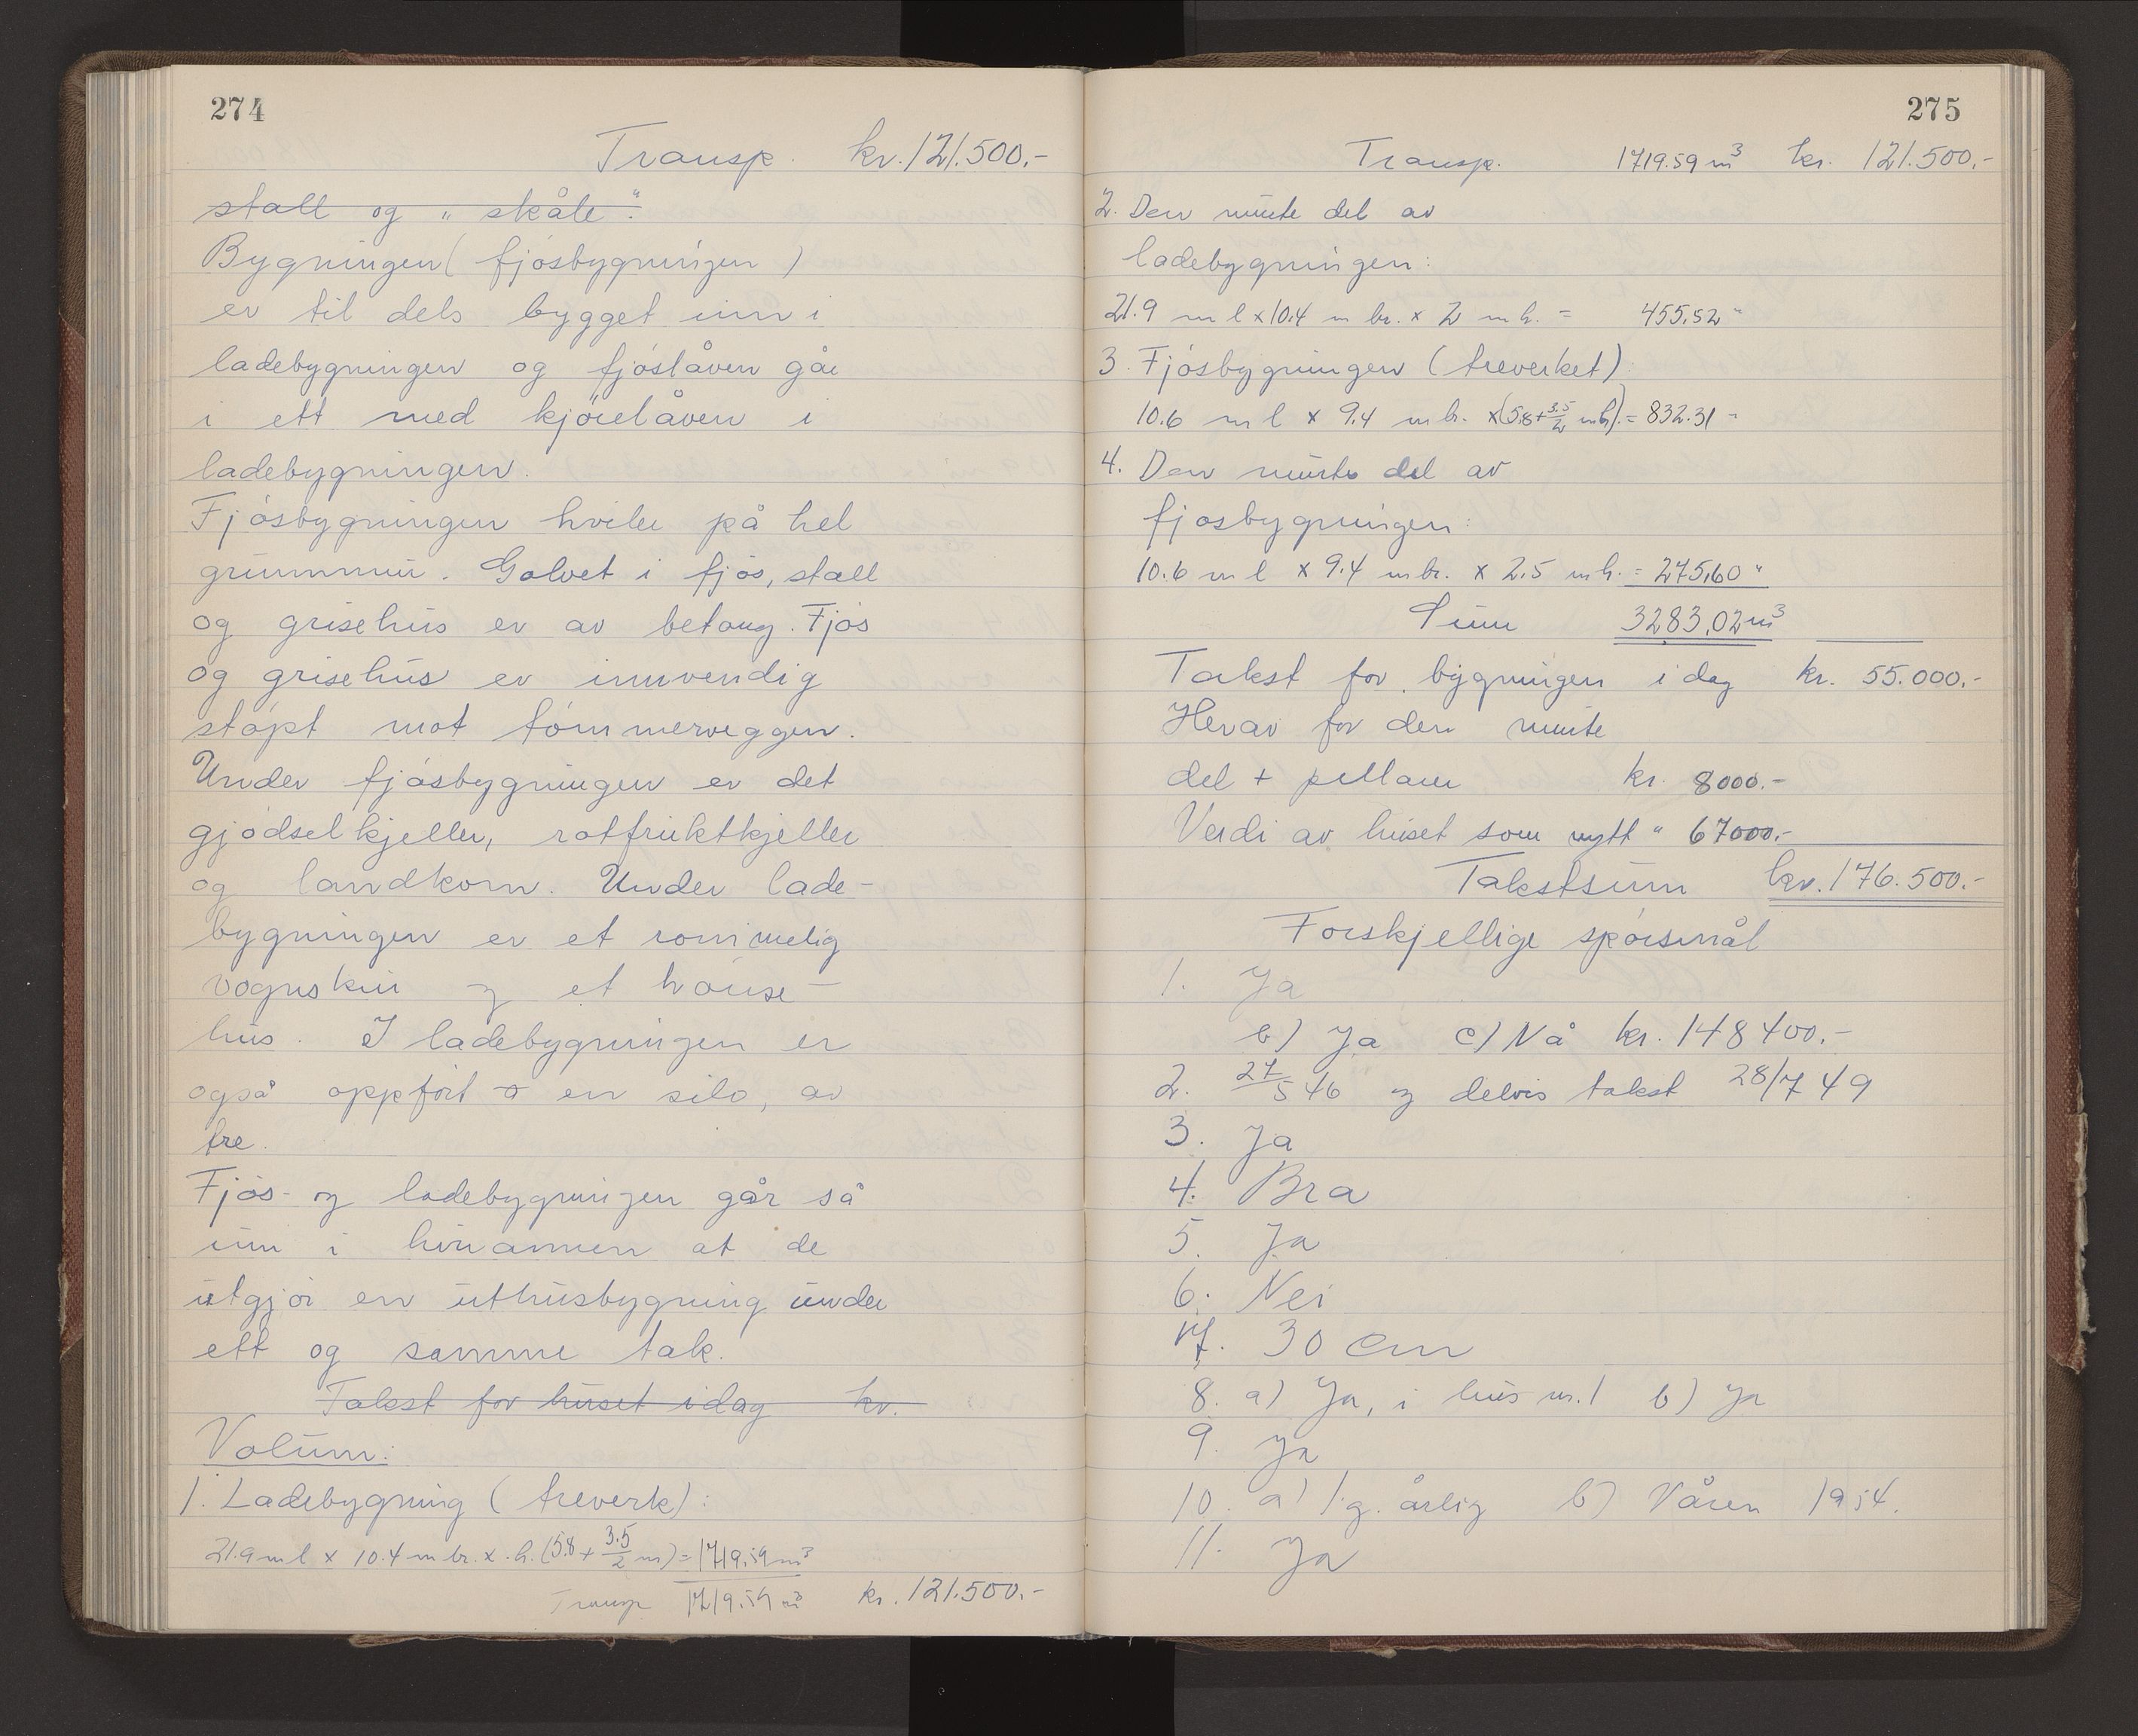 274
Transp. kr. 121.500.-
stall og „ skåle".
Bygningen ( fjósbygningen )
er til dels bygget inn i
ladebygningen og fjóslåven går
i ett med kjórelåven i
ladebygningen.
Fjósbygningen hviler på hel
grunnmur. Golvet i fjós, stall
og grisehus er av betong. Fjós
og grisehus er innvendig
stópt mot tómmerveggen.
Under fjósbygningen er det
gjódselkjeller, rotfruktkjeller
og landkom. Under lade-
bygningen er et rommelig
vognskur og et hónse-
hus. I ladebygningen er
også oppfórt en silo, av
tre.
Fjós- og ladebygningen går så
inn i hinannen at de
utgjór en uthusbygning under
ett og samme tak.
Takst for huset idag kr.
Volum:
1. Ladebygning ( treverk) :
21.9 m l x 10.4 m br. x h. (5.8 + 3.5/2 m) = 1719.59 m³
Transp 1719.59 m³ kr. 121.500.-
275
Transp. 1719.59 m³ kr. 121.500.-
2. Den murte del av
ladebygningen:
21.9 m l x 10.4 m br. x 2 m h. = 455,52 "
3. Fjósbygningen (treverket):
10.6 m l x 9.4 m br. x (5.8 + 3.5/2 m h). = 832.31 "
4. Den murte del av
fjosbygningen:
10.6 m l x 9.4 m br. x 2.5 m h. = 275,60 "
Sum 3283,02 m³
Takst for bygningen i dag kr. 55.000.-
Herav for den murte
del + pillarer kr. 8000.-
Verdi av huset som nytt " 67000.-
Takstsum kr. 176.500.-
Forskjellige spórsmål
1. Ja
b) Ja c) Nå kr. 148400.-
2. 27/5 46 og delvis takst 28/7 49
3. Ja
4. Bra
5. Ja
6. Nei
7. 30 cm
8. a) Ja, i hus nr. 1 b) Ja
9. Ja
10. a) 1 g. årlig b) Våren 1954.
11. Ja